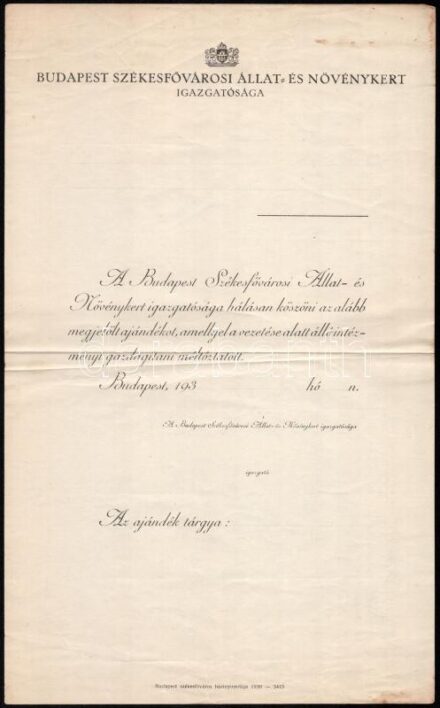 BUDAPEST SZÉKESFŐVÁROSI ÁLLAT- ÉS NÖVÉNYKERT
IGAZGATÓSÁGA
A Budapest Székesfővárosi Állat- és
Növénykert igazgatósága hálásan köszöni az alább
megjelölt ajándékot, amellyel a vezetése alatt álló intéz-
ményt gazdagítani méltóztatott.
Budapest, 193 hó n.
A Budapest Székesfővárosi Állat- és Növénykert igazgatósága
igazgató
Az ajándék tárgya:
Budapest székesfőváros házinyomdája 1930 —